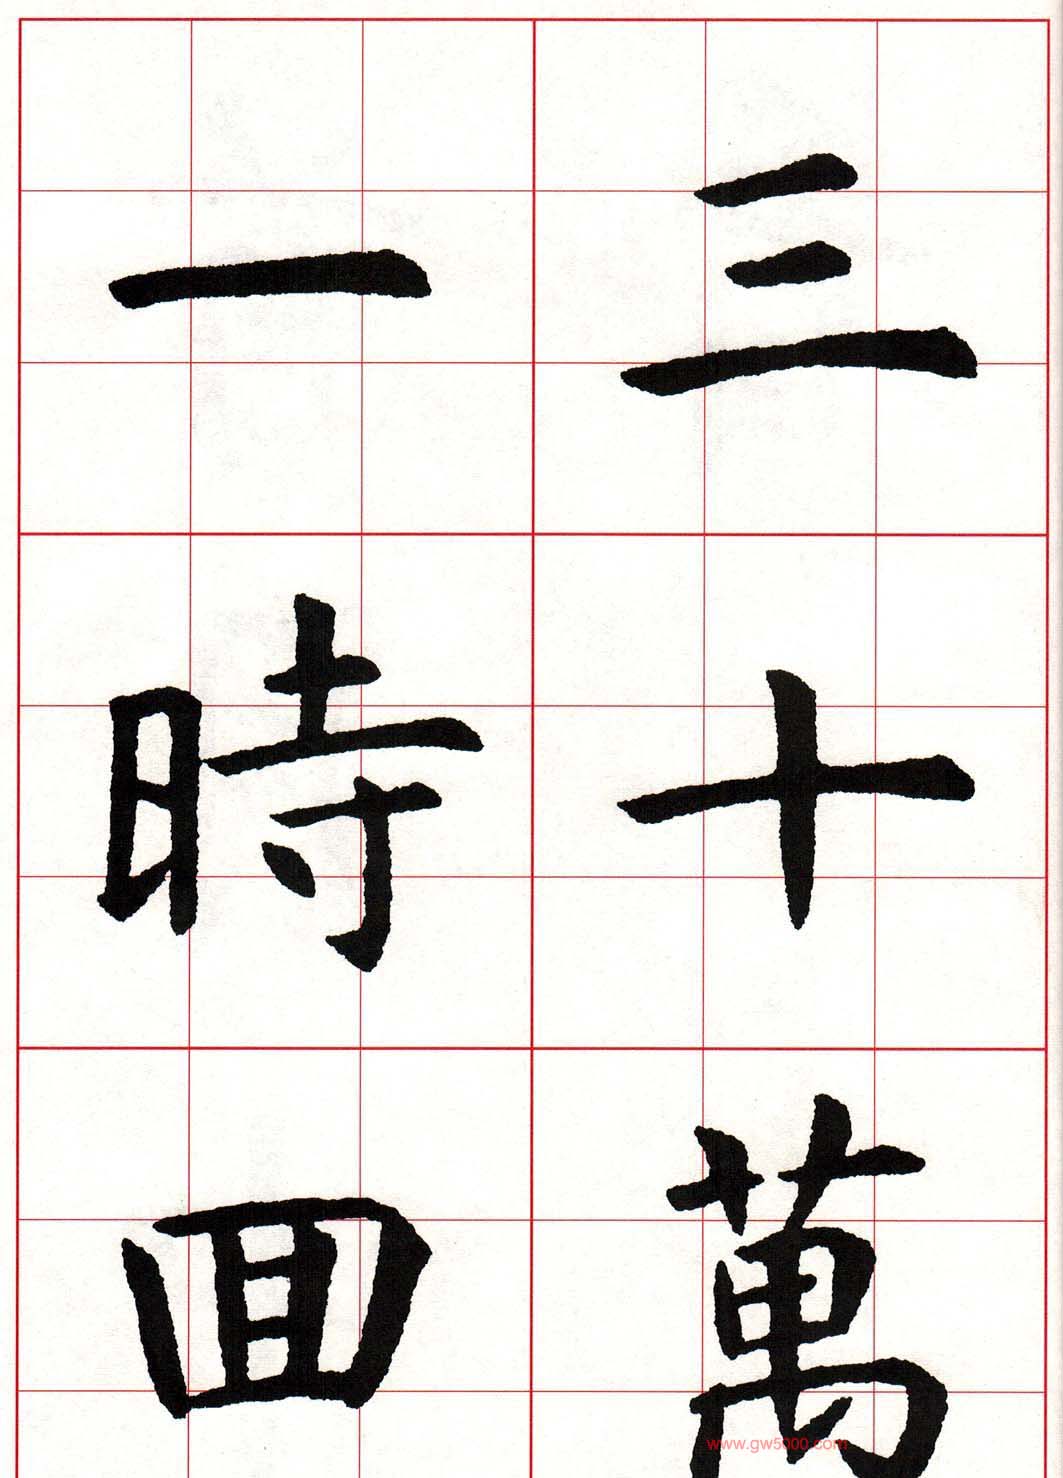 三十萬
一時囬
www.gw5000.com